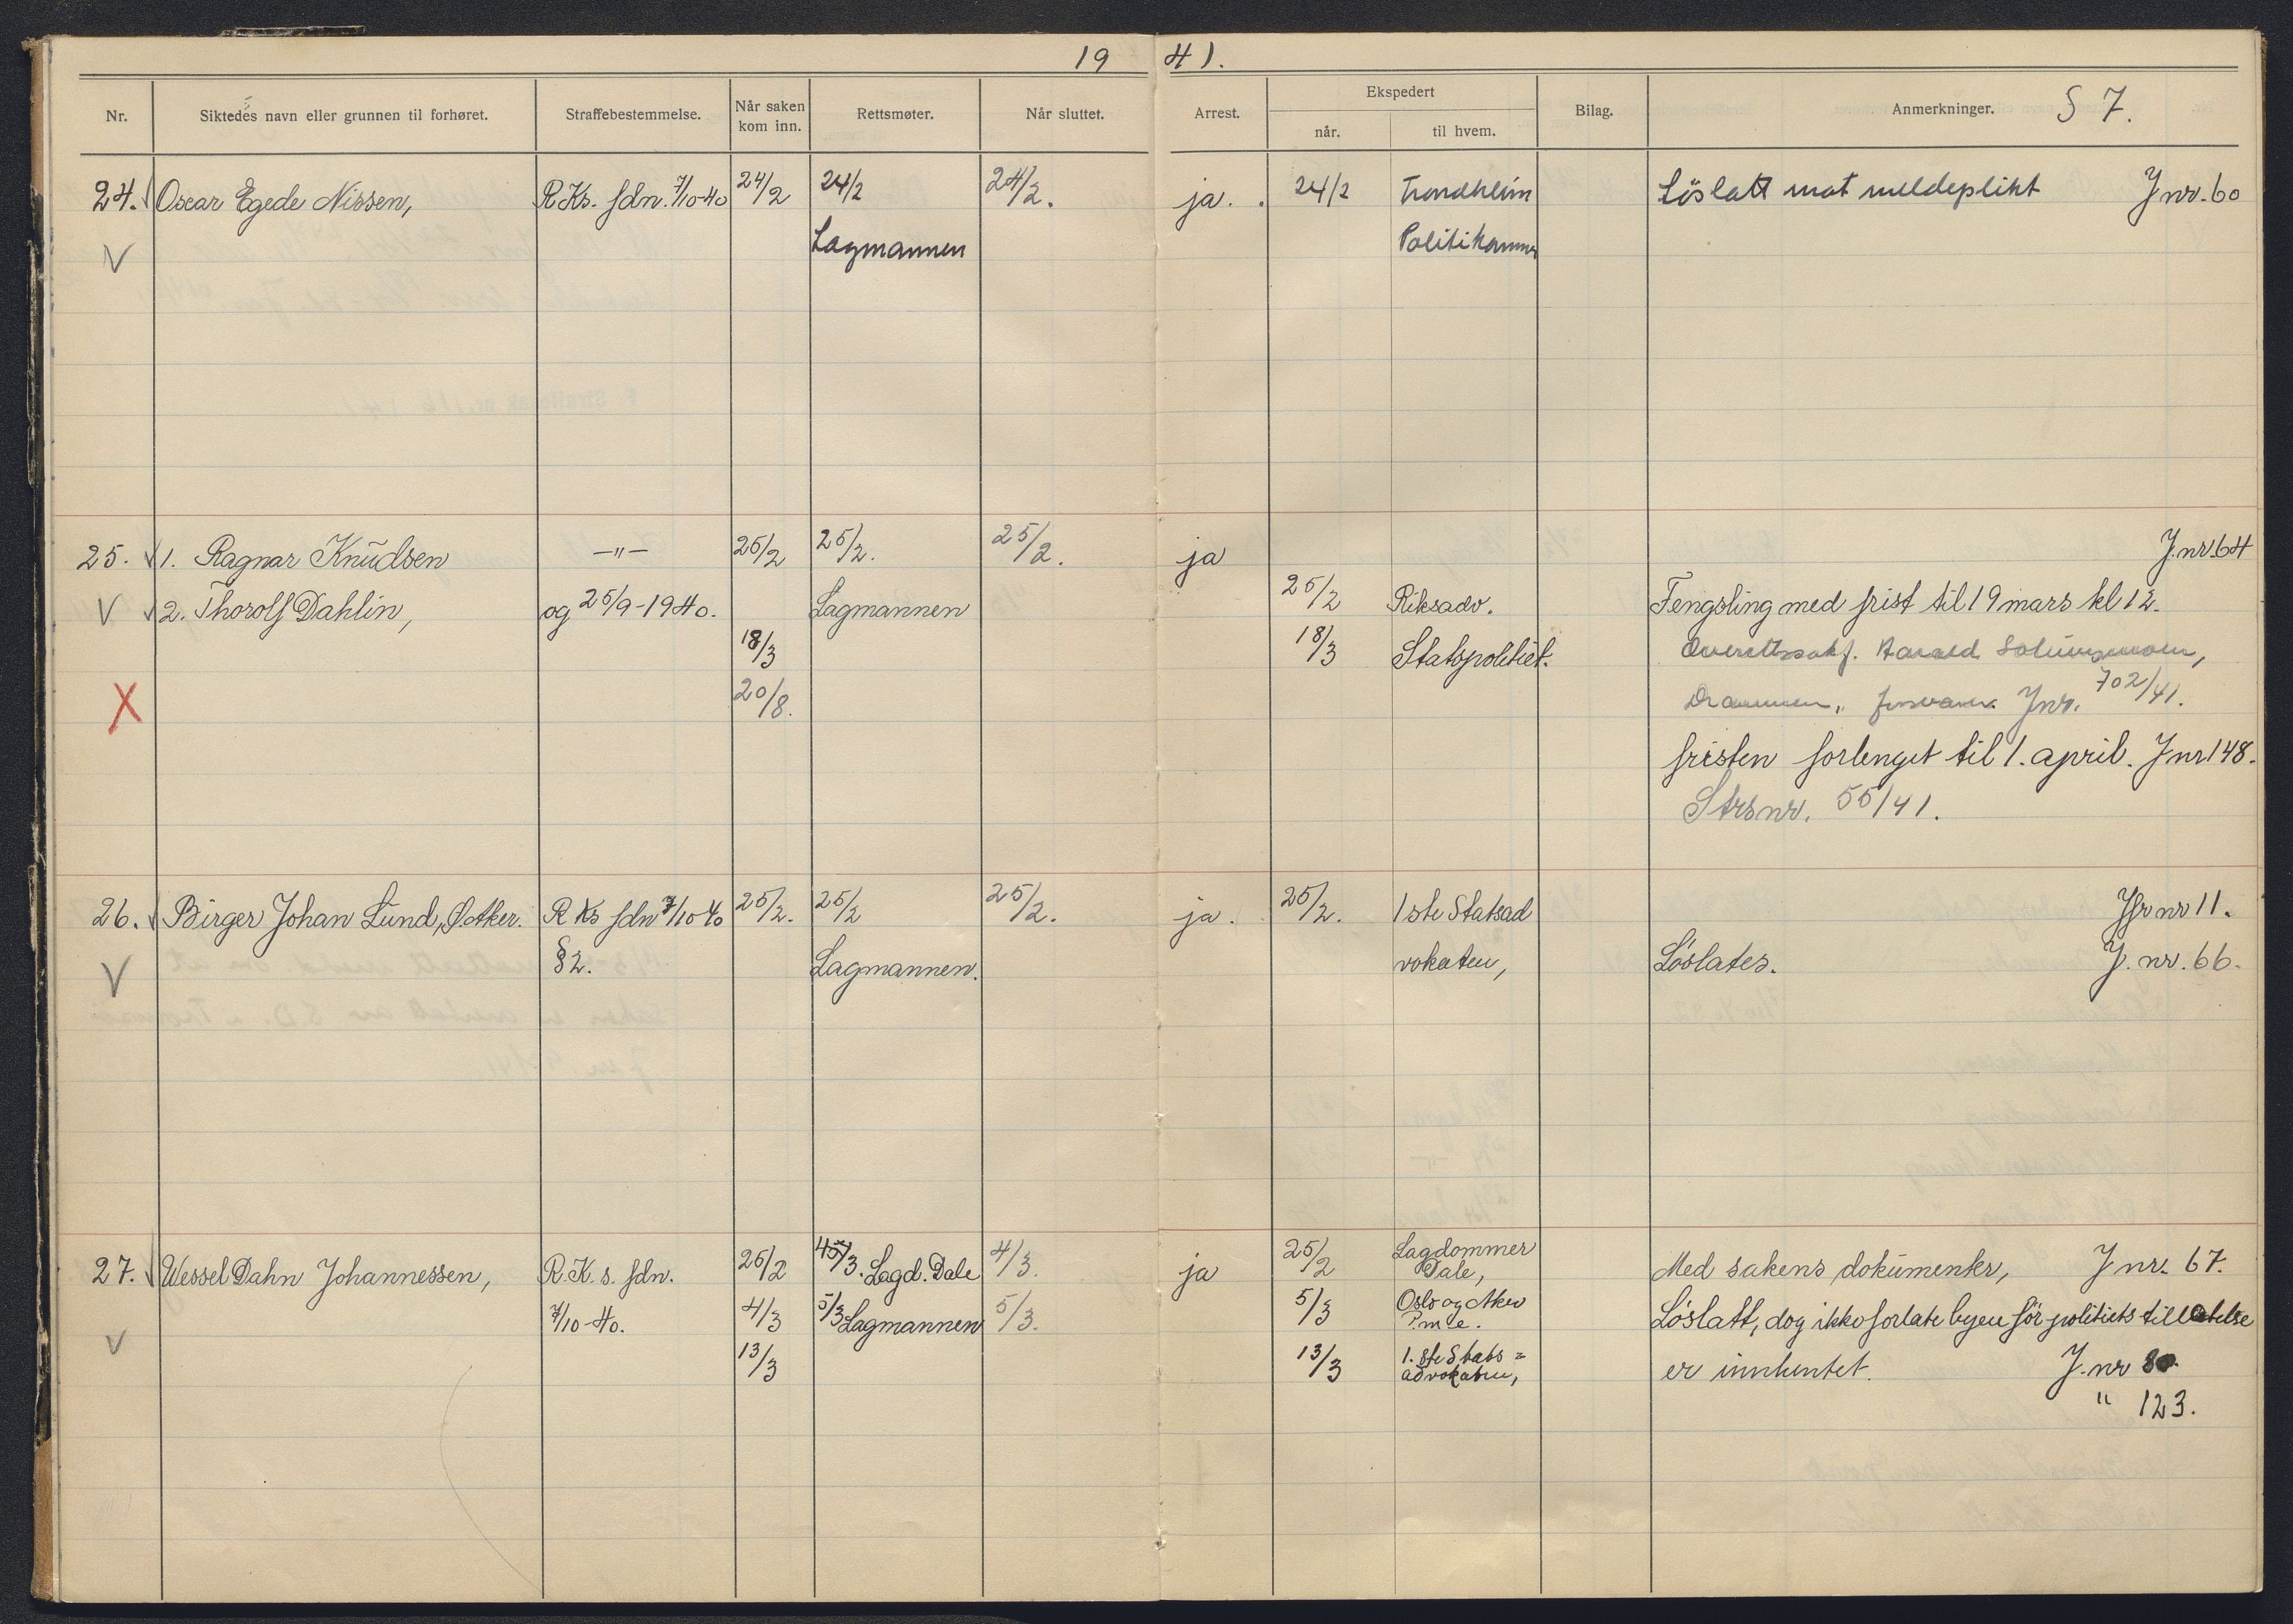 19 41.
Nr. Siktedes navn eller grunnen til forhøret. Straffebestemmelse. Når saken kom inn. Rettsmøter. Når sluttet. Arrest. Ekspedert når. til hvem. Bilag. Anmerkninger. § 7.
24. Oscar Egede Nissen, R.Ks. fdn. 7/10-40 24/2 24/2 24/2. ja. 24/2 Trondheim Löslatt mot meldeplikt J nr. 60
V Lagmannen Politikammer
25. 1. Ragnar Knudsen —"— 25/2 25/2. 25/2. ja J.nr.64
V 2. Thorolf Dahlin, og 25/9-1940. Lagmannen 25/2 Riksadv. Fengsling med frist til 19 mars kl 12.
18/3 18/3 Statspolitiet. Overettssakf. Harald
X 20/8. Drammen, Jnr. 702/41.
fristen forlenget til 1. april. J nr 148.
Strsnr. 55/41.
26. Birger Johan Lund, Ø. Aker. R Ks fdn 7/10 40 25/2. 25/2 25/2. ja. 25/2. 1ste Statsad Jfr nr 11.
V § 2. Lagmannen. vokaten, Löslates. J. nr. 66.
27. Wessel Dahn Johannessen, R.K.s. fdn. 25/2 4/3. Lagd. Dale 4/3. ja 25/2 Lagdommer Dale, Med sakens dokumenter, J nr. 67.
7/10-40. 4/3 5/3 Lagmannen 5/3. 5/3 Oslo og Aker P.m.e. Löslatt, dog ikke forlate byen för politiets tillatelse
V 13/3 13/3 1. ste Stats= advokaten, er innhentet. J. nr 80.
" 123.